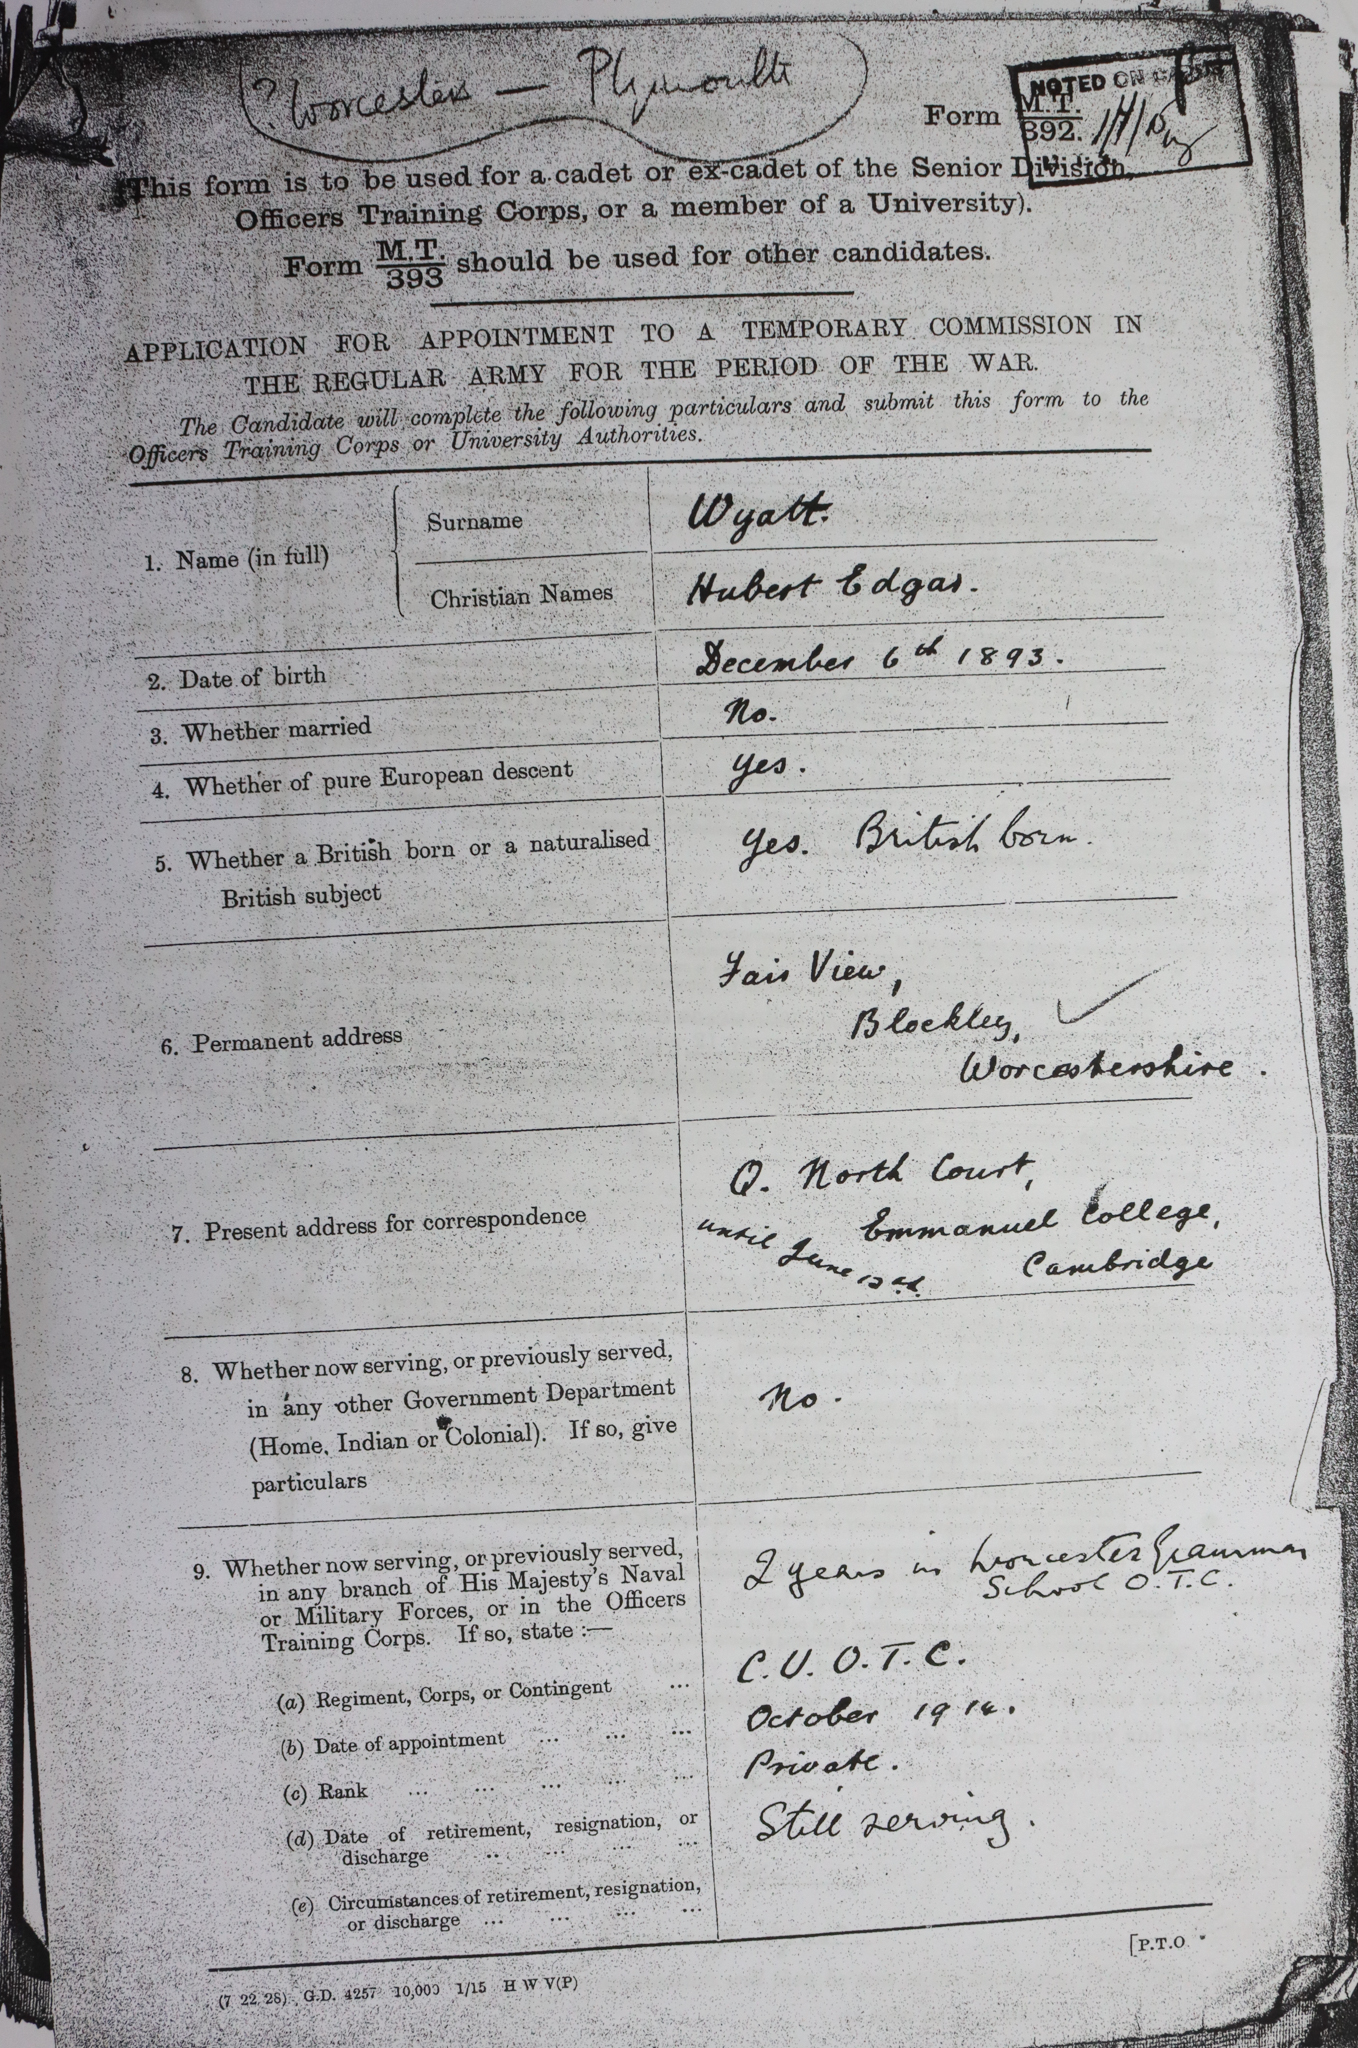 ? Worcesters — Plymouth
NOTED ON CARDS
Form M.T.
392.
(This form is to be used for a cadet or ex-cadet of the Senior Division,
Officers Training Corps, or a member of a University).
Form M.T.
393 should be used for other candidates.
APPLICATION FOR APPOINTMENT TO A TEMPORARY COMMISSION IN
THE REGULAR ARMY FOR THE PERIOD OF THE WAR.
The Candidate will complete the following particulars and submit this form to the
Officers Training Corps or University Authorities.
1. Name (in full)
Surname
Wyatt.
Christian Names
Hubert Edgar.
2. Date of birth
December 6th 1893.
3. Whether married
No.
4. Whether of pure European descent
Yes.
5. Whether a British born or a naturalised
British subject
Yes. British born.
6. Permanent address
Fair View,
Blockley,
Worcestershire.
7. Present address for correspondence
Q. North Court,
Emmanuel College,
Cambridge
until June
8. Whether now serving, or previously served,
in any other Government Department
(Home, Indian or Colonial). If so, give
particulars
No.
9. Whether now serving, or previously served,
in any branch of His Majesty's Naval
or Military Forces, or in the Officers
Training Corps. If so, state :—
2 years in Worcester Grammar
School O.T.C.
(a) Regiment, Corps, or Contingent ...
C.U.O.T.C.
(b) Date of appointment ... ... ...
October 1914.
(c) Rank ... ... ... ... ...
Private.
(d) Date of retirement, resignation, or
discharge ... ... ... ...
Still serving.
(e) Circumstances of retirement, resignation,
or discharge ... ... ... ...
[P.T.O
(7 22 28) G.D. 4257 10,000 1/15 H W V(P)